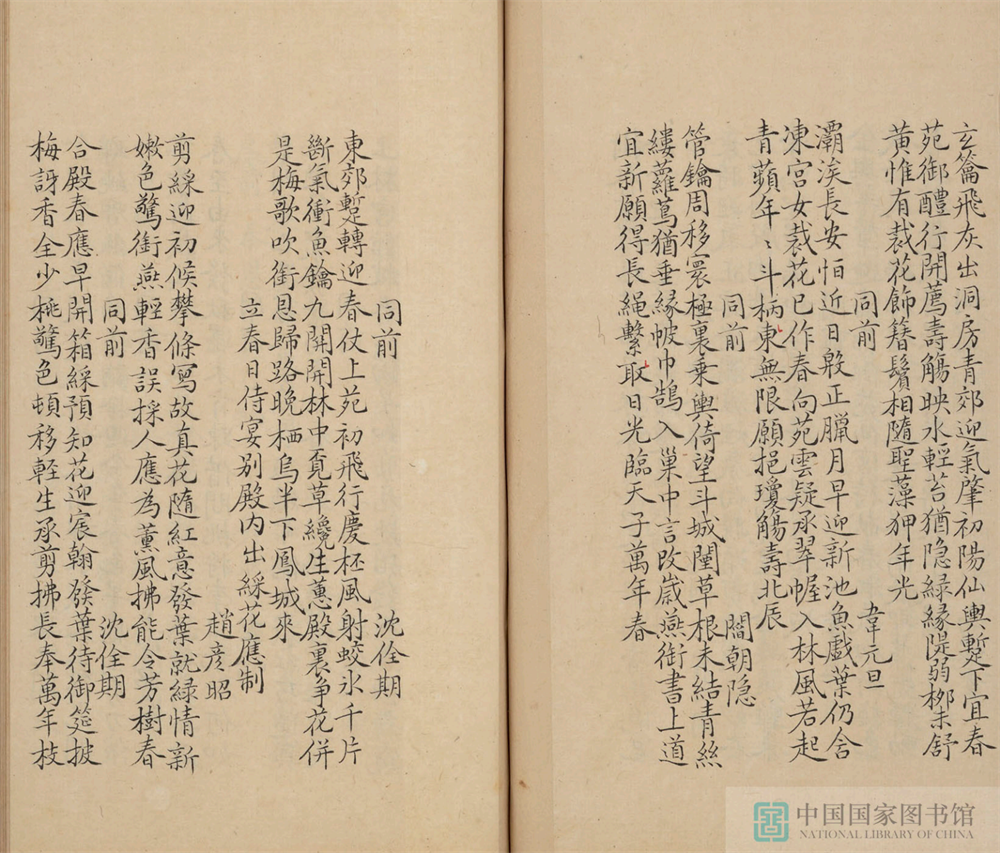 玄籥飛灰出洞房青郊迎氣肇初陽仙輿蹔下宜春
苑御醴行開薦壽觴映水輕苔猶隐緑緣隄弱桞未舒
黄惟有裁花飾簪鬢相隨聖藻狎年光
同前 韋元旦
灞涘長安怕近日殷正臘月早迎新池魚戲葉仍含
凍宮女裁花已作春向苑雲疑承翠幄入林風若起
青蘋年〻斗柄東無限願挹瓊觴壽北辰
同前 閻朝隐
管鑰周移寰極裏乗輿倚望斗城闉草根未結青絲
縷蘿蔦猶垂緣帔巾鵠入巢中言改歲燕銜書上道
宜新願得長繩繫取日光臨天子萬年春
同前 沈佺期
東郊蹔轉迎春仗上苑初飛行慶杯風射蛟氷千片
斷氣衝魚鑰九開開林中覔草纔生蕙殿裏争花併
是梅歌吹銜恩歸路晚栖烏半下鳳城來
立春日侍宴别殿内出綵花應制
趙彦昭
剪綵迎初候攀條冩故真花隨紅意發葉就緑情新
嫩色驚銜燕輕香誤採人應為薫風拂能令芳樹春
同前 沈佺期
合殿春應早開箱綵預知花迎宸翰發葉待御筵披
梅訝香全少桃驚色頓移輕生承剪拂長奉萬年枝
中国国家图书馆
NATIONAL LIBRARY OF CHINA